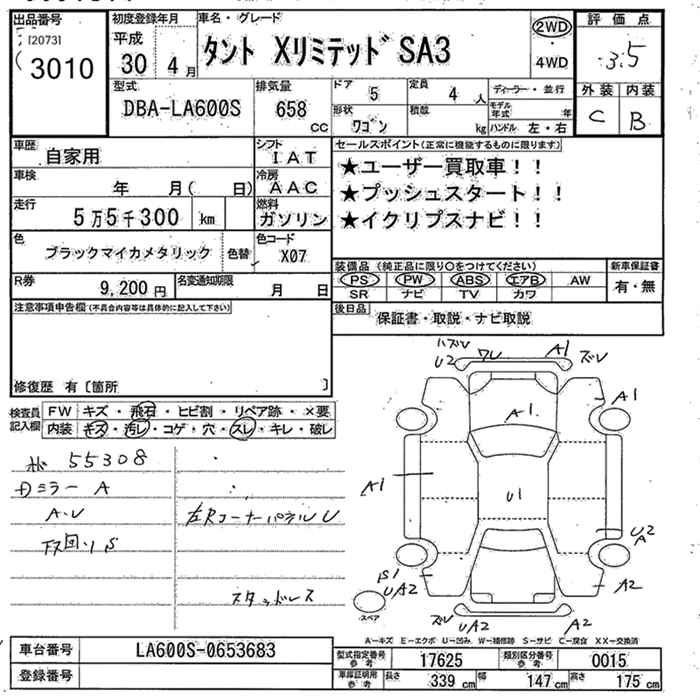 出品番号
[2073]
3010
初度登録年月
平成
30年 4月
車名・グレード
タント XリミテッドSA3
2WD
・
4WD
評価点
3.5
外装 内装
C B
型式
DBA-LA600S
排気量
658 CC
ドア
5
定員
4 人
形状
ワゴン
積載
kg
ディーラー・並行
モデル年式 年
ハンドル 左・右
車歴
自家用
シフト
IAT
車検
年 月( 日)
冷房
AAC
走行
5万5千300 km
燃料
ガソリン
色
ブラックマイカメタリック
色替
色コード
X07
R券
9,200円
名変通知期限
月 日
セールスポイント(正常に機能するものに限ります)
★ユーザー買取車!!
★プッシュスタート!!
★イクリプスナビ!!
装備品(純正品に限り○をつけてください)
PS PW ABS エアB AW
SR ナビ TV カワ
新車保証書
有・無
後日品
保証書・取説・ナビ取説
注意事項申告欄(不具合内容等は具体的に記入して下さい)
修復歴 有〔箇所 〕
検査員記入欄
FW キズ・飛石・ヒビ割・リペア跡・×要
内装 キズ・汚レ・コゲ・穴・スレ・キレ・破レ
55308
ミラー A
A・U
S
左Rコーナーパネル U
スタッドレス
ハズレ
U2
ワレ
A1
ズレ
A1
A1
A1
U1
U2
A
S1
UA2
A2
ズレ
UA2
A2
スペア
A－キズ E－エクボ U－凹み W－補修跡 S－サビ C－腐食 XX－交換済
車台番号
LA600S-0653683
登録番号
型式指定番号 参考
17625
類別区分番号 参考
0015
車庫証明用 参考
長さ 339 cm
幅 147 cm
高さ 175 cm